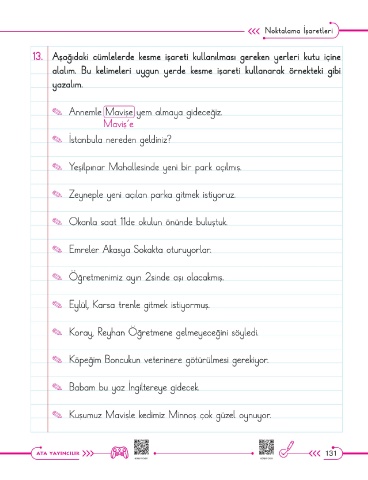 Noktalama İşaretleri
13. Aşağıdaki cümlelerde kesme işareti kullanılması gereken yerleri kutu içine
alalım. Bu kelimeleri uygun yerde kesme işareti kullanarak örnekteki gibi
yazalım.
Annemle Mavişe yem almaya gideceğiz.
Maviş'e
İstanbula nereden geldiniz?
Yeşilpınar Mahallesinde yeni bir park açılmış.
Zeyneple yeni açılan parka gitmek istiyoruz.
Okanla saat 11de okulun önünde buluştuk.
Emreler Akasya Sokakta oturuyorlar.
Öğretmenimiz ayın 2sinde aşı olacakmış.
Eylül, Karsa trenle gitmek istiyormuş.
Koray, Reyhan Öğretmene gelmeyeceğini söyledi.
Köpeğim Boncukun veterinere götürülmesi gerekiyor.
Babam bu yaz İngiltereye gidecek.
Kuşumuz Mavişle kedimiz Minnoş çok güzel oynuyor.
ATA YAYINCILIK
131